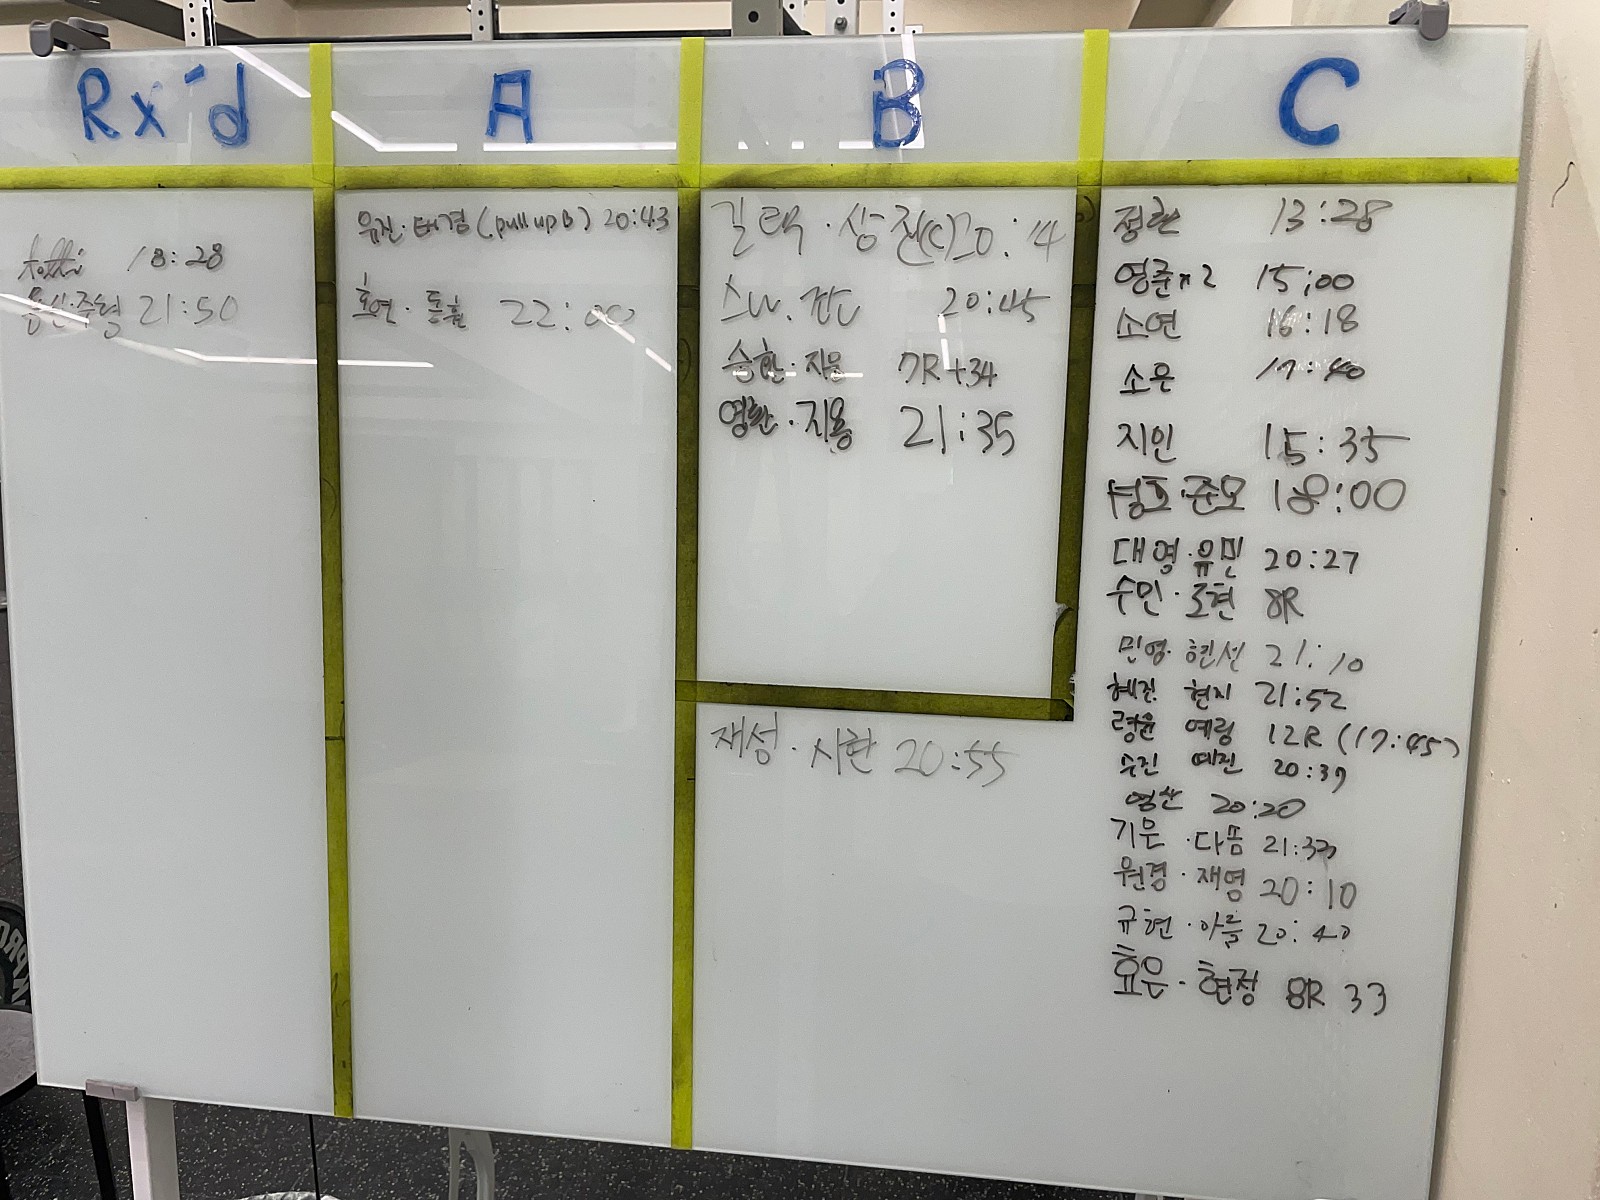 Rx'd
18:28
21:50
A
유진·태겸 (pull up B) 20:43
호연· 22:00
B
길택·상진(C) 20:14
20:45
승환·지웅 7R+34
영환·지용 21:35
재성·시환 20:55
C
정환 13:28
영준x2 15:00
소연 16:18
소은 17:40
지인 15:35
준모 18:00
대영·유민 20:27
수민·도현 8R
민영·현선 21:10
혜진 현지 21:52
령윤 예림 12R (17:45)
수진 예진 20:39
영산 20:20
기은·다쏨 21:33
원경·재영 20:10
규현·아름 20:40
효은·현정 8R 33